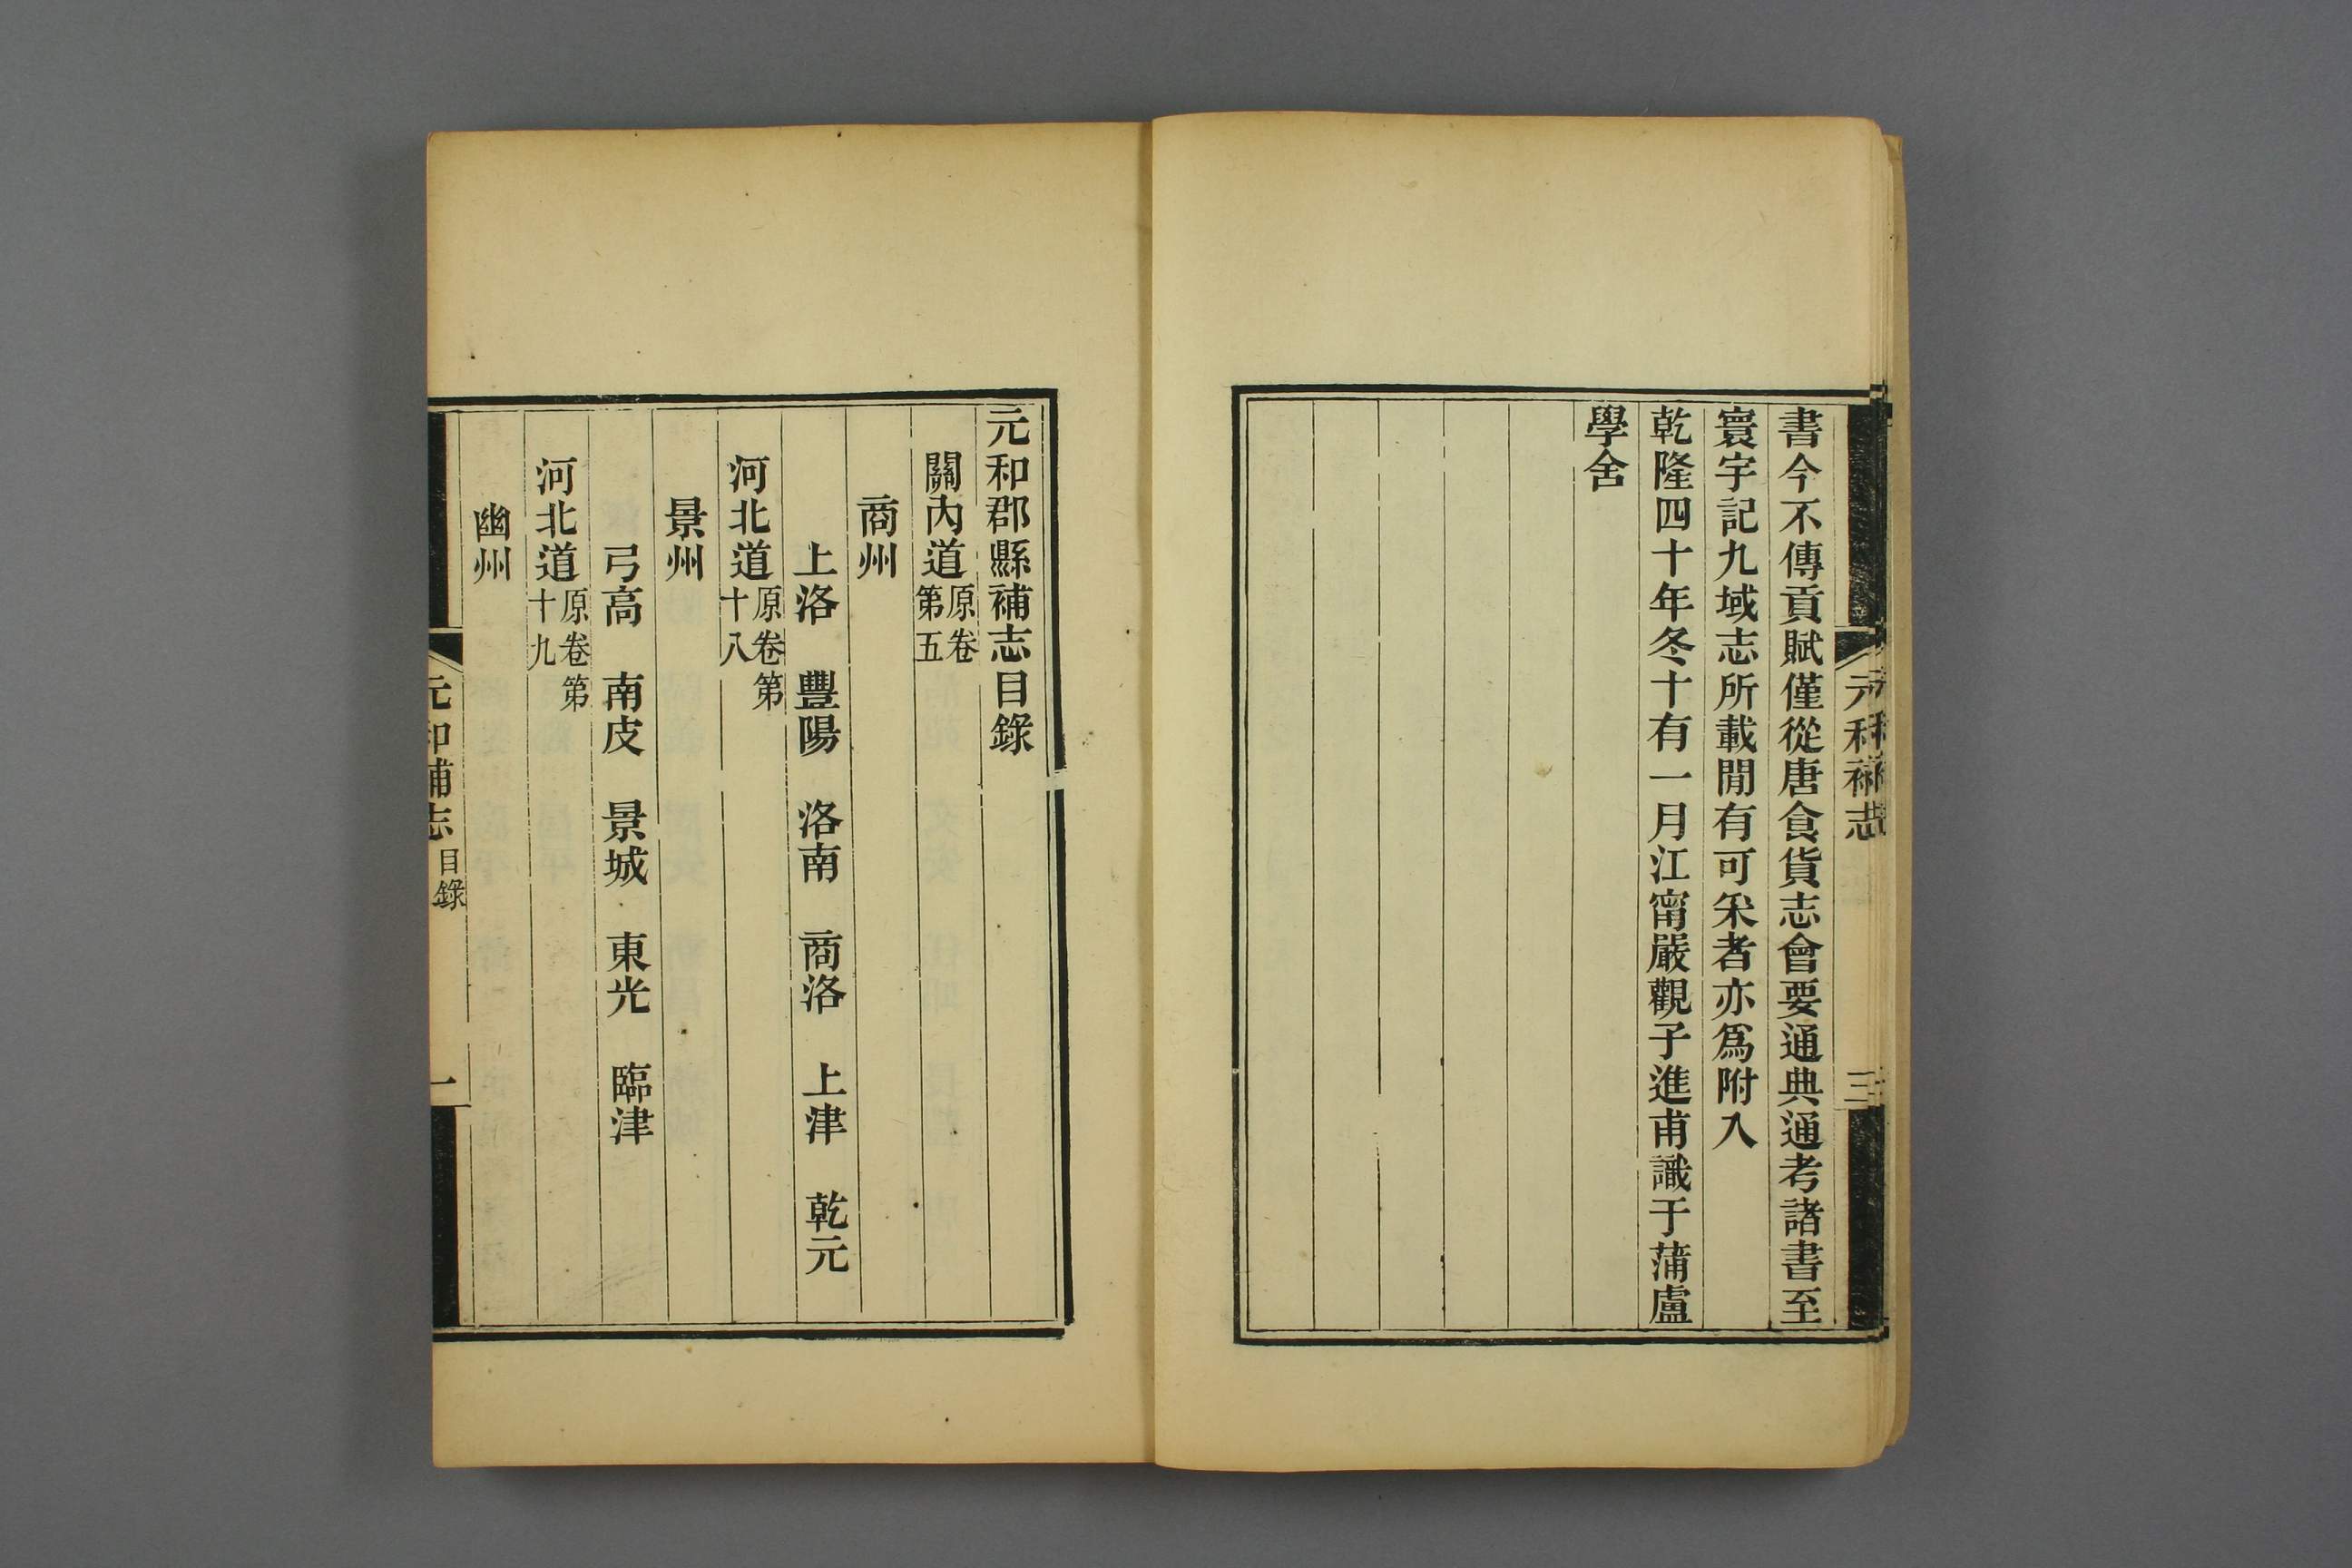 元和補志
三
書今不傳貢賦僅從唐食貨志會要通典通考諸書至
寰宇記九域志所載閒有可采者亦爲附入
乾隆四十年冬十有一月江甯嚴觀子進甫識于蒲盧
學舍
元和郡縣補志目錄
關內道原卷第五
商州
上洛 豐陽 洛南 商洛 上津 乾元
河北道原卷第十八
景州
弓高 南皮 景城 東光 臨津
河北道原卷第十九
幽州
元和補志 目錄
一